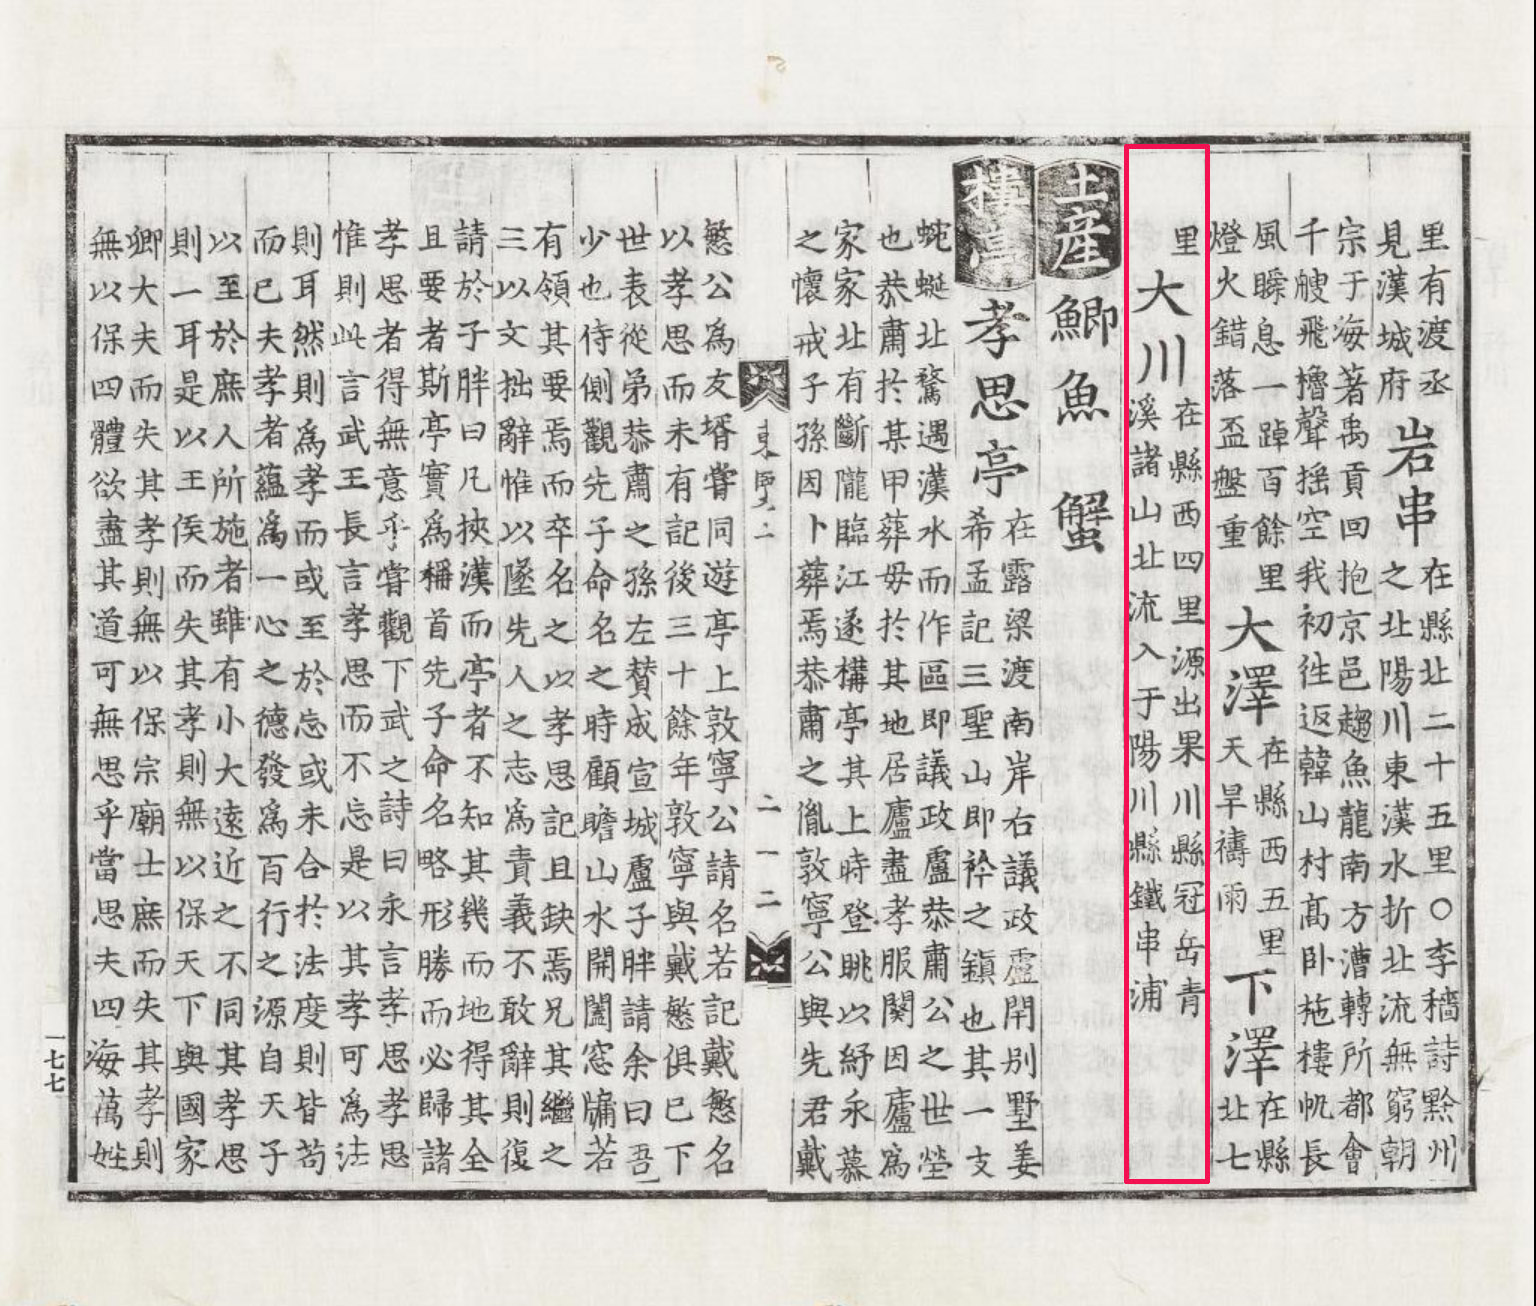 里有渡丞
見漢城府
岩串
在縣北二十五里○李穡詩黔州
之北陽川東漢水折北流無窮朝
宗于海著禹貢回抱京邑趨魚龍南方漕轉所都會
千艘飛櫓聲搖空我初往返韓山村高卧柂樓帆長
風瞬息一踔百餘里
燈火錯落盃盤重
大澤
在縣西五里
天旱禱雨
下澤
在縣
北七
里
大川
在縣西四里源出果川縣冠岳青
溪諸山北流入于陽川縣鐵串浦
土産
鯽魚 蟹
樓亭
孝思亭
在露梁渡南岸右議政盧閈别墅姜
希孟記三聖山即衿之鎭也其一支
蜿蜒北騖遇漢水而作區即議政盧恭肅公之世塋
也恭肅於某甲葬毋於其地居廬盡孝服闋因廬爲
家家北有斷隴臨江遂構亭其上時登眺以紓永慕
之懷戒子孫因卜葬焉恭肅之胤敦寧公與先君戴
東覽二
二一二
慜公爲友壻甞同遊亭上敦寧公請名若記戴慜名
以孝思而未有記後三十餘年敦寧與戴慜俱已下
世表從弟恭肅之孫左賛成宣城盧子胖請余曰吾
少也侍側觀先子命名之時顧瞻山水開闔窓牖若
有領其要焉而卒名之以孝思記且缺焉兄其繼之
三以文拙辭惟以墜先人之志爲責義不敢辭則復
請於子胖曰凡挾漢而亭者不知其幾而地得其全
且要者斯亭實爲稱首先子命名略形勝而必歸諸
孝思者得無意乎甞觀下武之詩曰永言孝思孝思
惟則此言武王長言孝思而不忘是以其孝可爲法
則耳然則爲孝而或至於忘或未合於法度則皆苟
而已夫孝者蘊爲一心之德發爲百行之源自天子
以至於庶人所施者雖有小大遠近之不同其孝思
則一耳是以王侯而失其孝則無以保天下與國家
卿大夫而失其孝則無以保宗廟士庶而失其孝則
無以保四體欲盡其道可無思乎當思夫四海萬姓
一七七